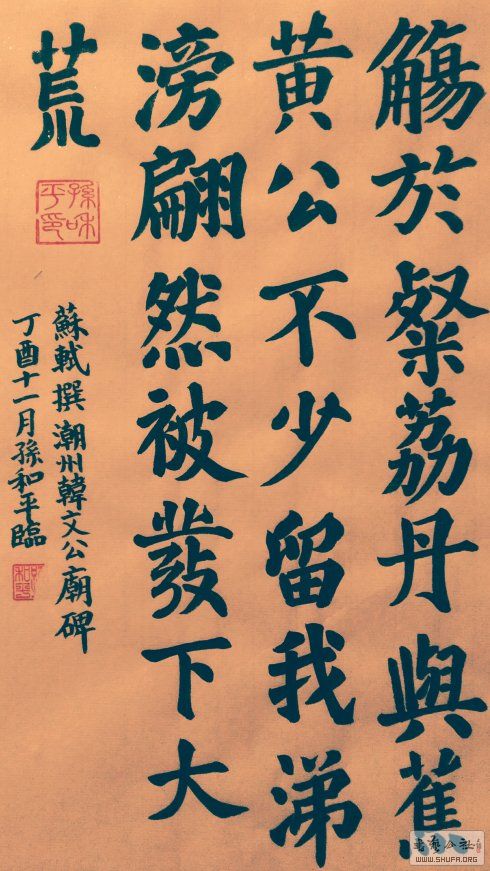 觴於粲荔丹與蕉
黄公不少留我涕
滂翩然被發下大
荒
孫和平印
蘇軾撰潮州韓文公廟碑
丁酉十一月孫和平臨
書藝公社
WWW.SHUFA.ORG